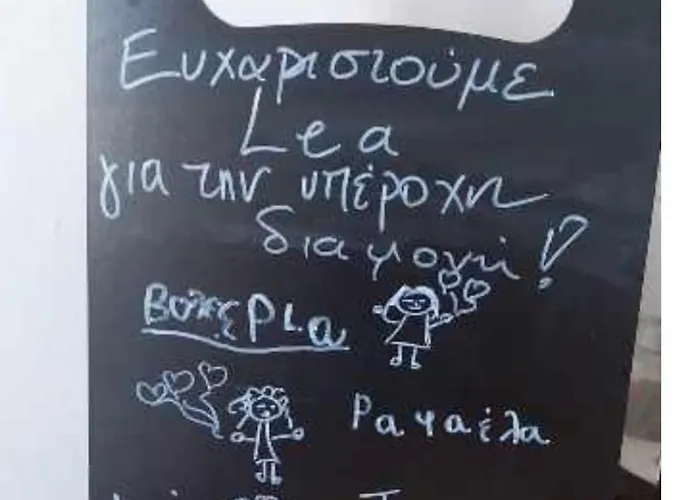 Ευχαριστούμε
Lea
για την υπέροχη
διαμονή!
Ραφαέλα